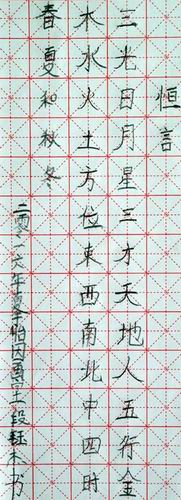 恒言
三光日月星三才天地人五行金
木水火土方位东西南北中四时
春夏和秋冬
二零一六年夏
段钰木书